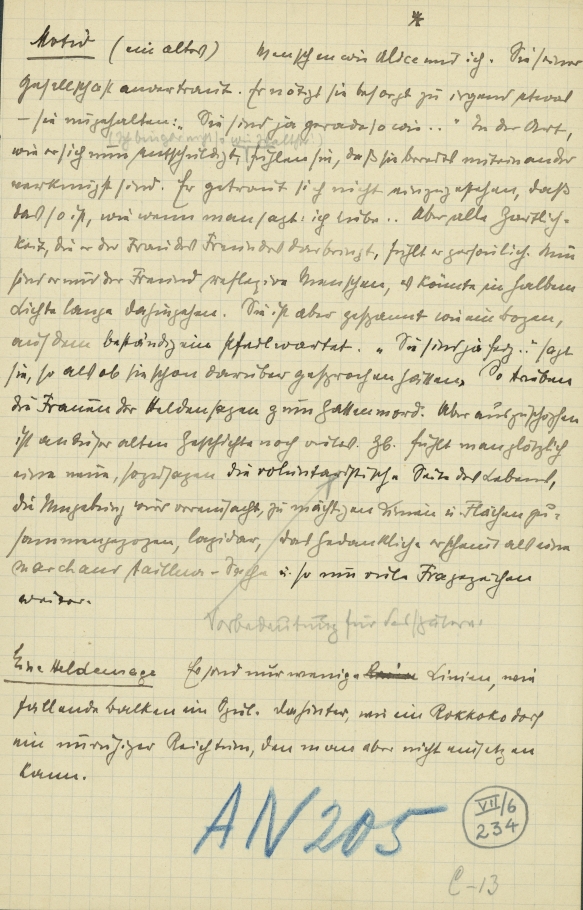 Motiv (ein altes) Menschen wie Alice und ich. Sie seiner
Gesellschaft anvertraut. Er nötigt sie besorgt zu irgend etwas
– sie ungehalten: „Sie sind ja gerade so wie .." In der Art,
wie er sich nun entschuldigt, fühlen sie, daß sie bereits miteinander
verknüpft sind. Er getraut sich nicht einzugestehen, daß
das so ist, wie wenn man sagt: ich liebe .. Aber alle Zärtlich-
keit, die er der Frau des Freundes darbringt, fühlt er persönlich. Nun
sind er und der Freund reflexive Menschen, es könnte in halbem
Lichte lange dahingehen. Sie ist aber gespannt wie ein Bogen,
auf dem beständig ein Pfeil wartet. „Sie sind ja feig .." sagt
sie, so als ob sie schon darüber gesprochen hätten. So trieben
die Frauen der Heldensagen zum Gattenmord. Aber auszuschöpfen
ist an dieser alten Geschichte noch vieles. Zb. fühlt man plötzlich
eine neue, sozusagen die voluntaristische Seite des Lebens,
die Umgebung wie vereinfacht, zu mächtigen Linien u. Flächen zu-
sammengezogen, lapidar, das Gedankliche erscheint als eine
marchand tailleur-Sache u. so nun viele Fragezeichen
weiter.
Vorbedeutung für das spätere.
Eine Heldensage Es sind nur wenige Linien, wie
fallende Balken im Gral. Dahinter, wie ein Rokkokodorf
ein unruhiger Reichtum, den man aber nicht einsetzen
kann.
AN 205
VII/6
234
C-13